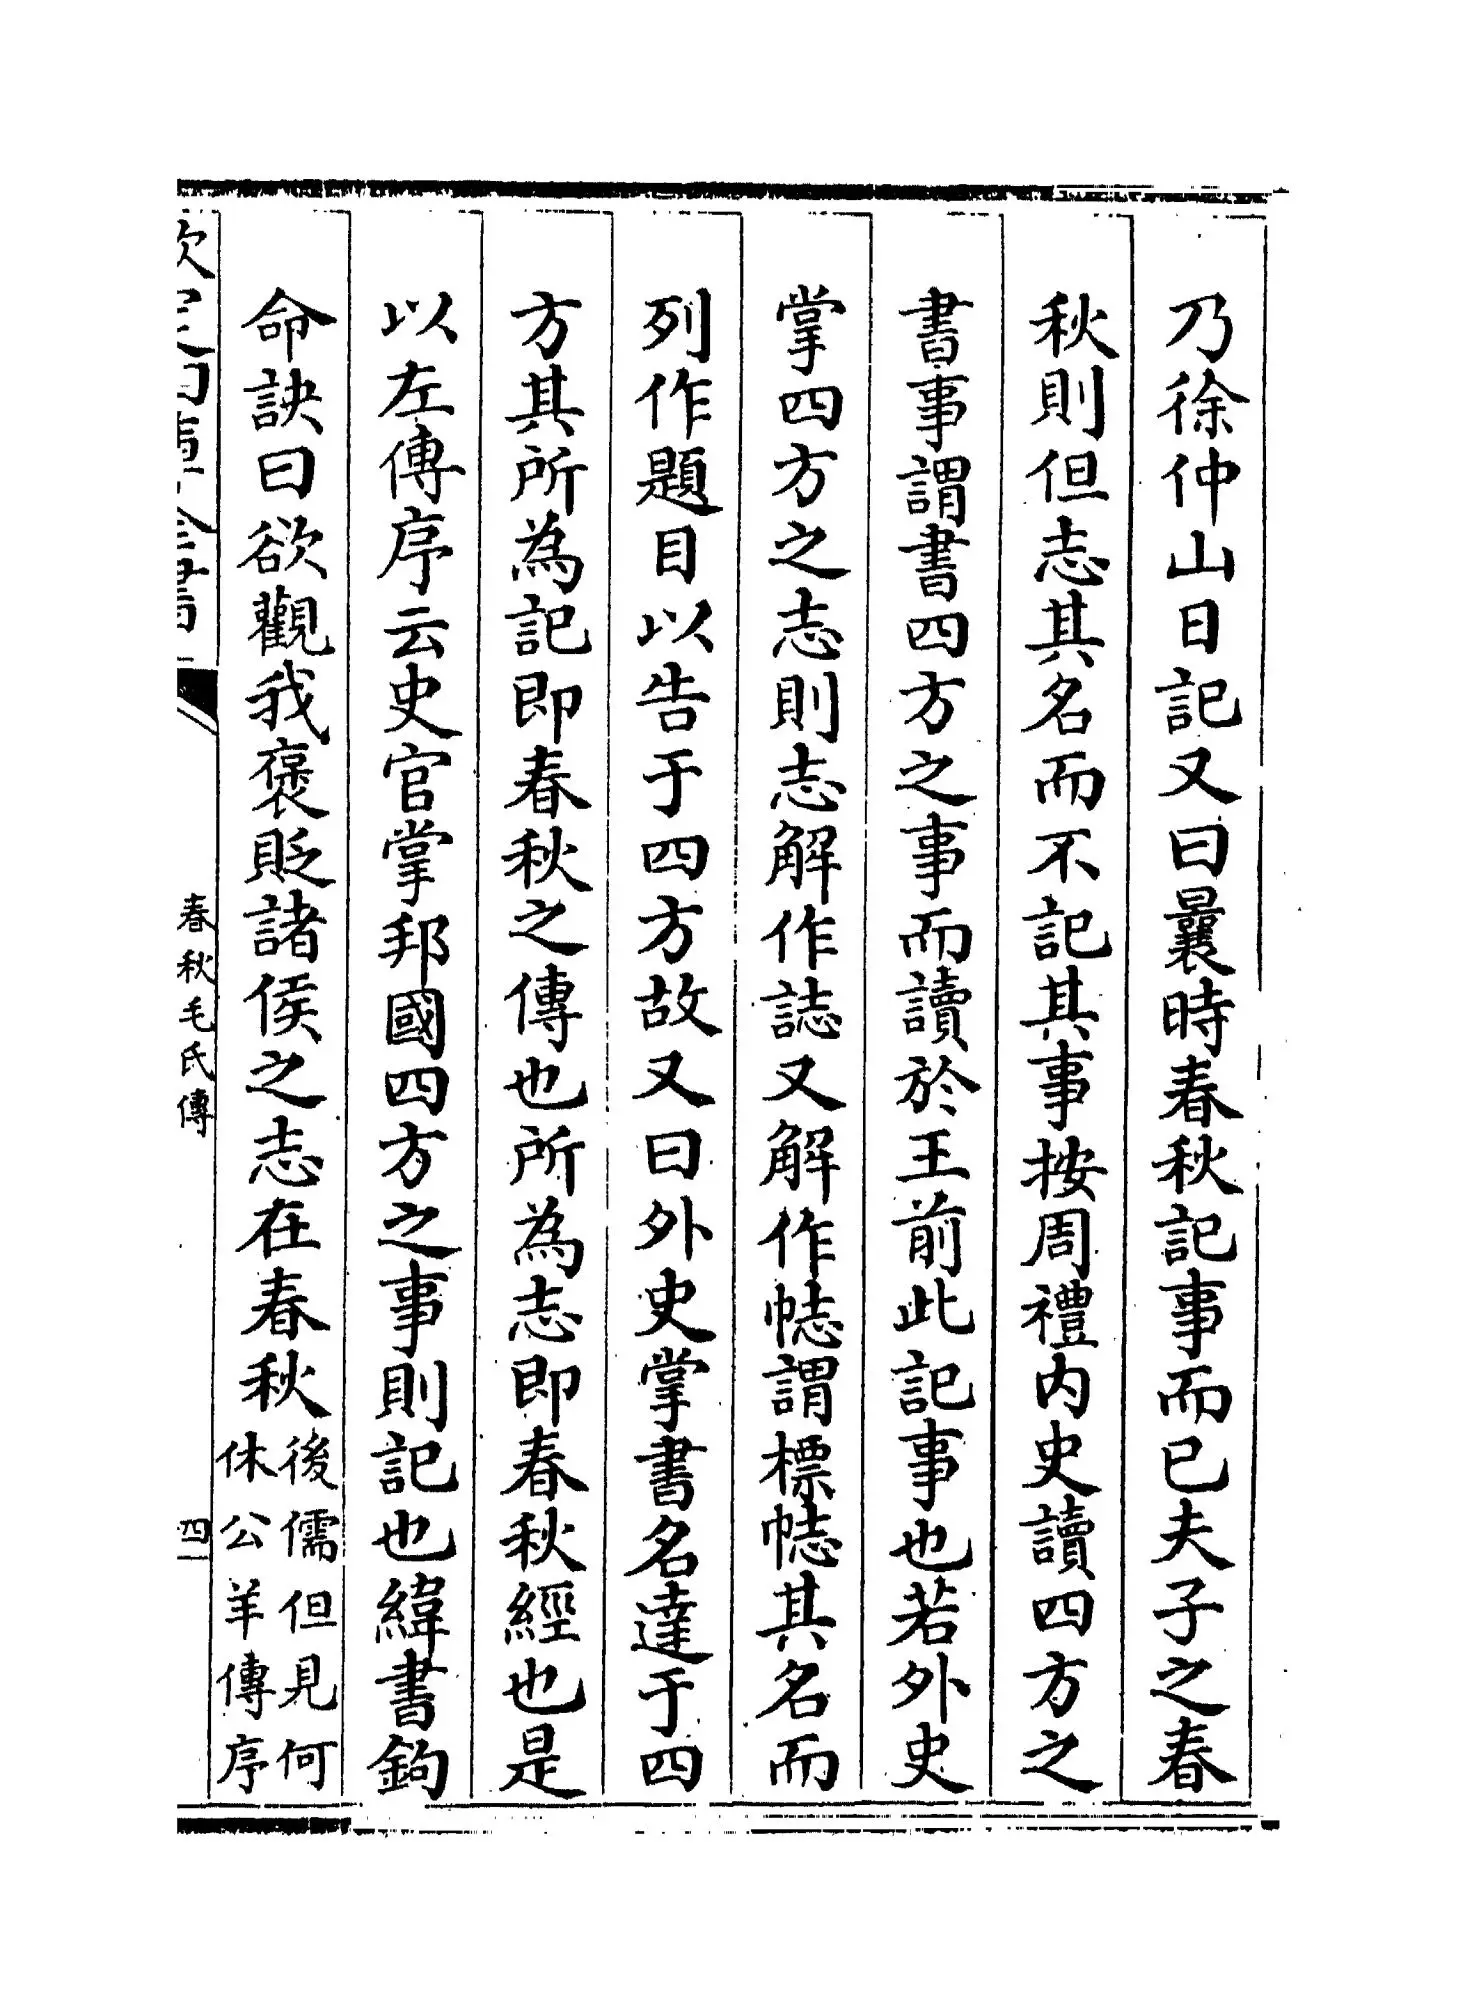 乃徐仲山日記又曰曩時春秋記事而已夫子之春
秋則但志其名而不記其事按周禮内史讀四方之
書事謂書四方之事而讀於王前此記事也若外史
掌四方之志則志解作誌又解作幟謂標幟其名而
列作題目以告于四方故又曰外史掌書名達于四
方其所為記即春秋之傳也所為志即春秋經也是
以左傳序云史官掌邦國四方之事則記也緯書鉤
命訣曰欲觀我褒貶諸侯之志在春秋
後儒但見何
休公羊傳序
欽定四庫全書
春秋毛氏傳
四